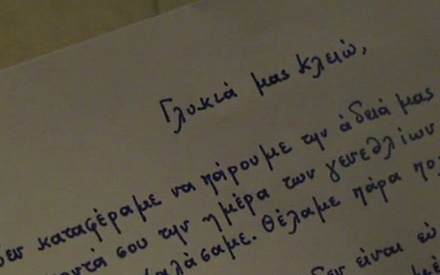 Γλυκιά μας Κλειώ,
δεν καταφέραμε να πάρουμε την άδειά μας
σου την ημέρα των γενεθλίων
Θέλαμε πάρα
δεν είναι